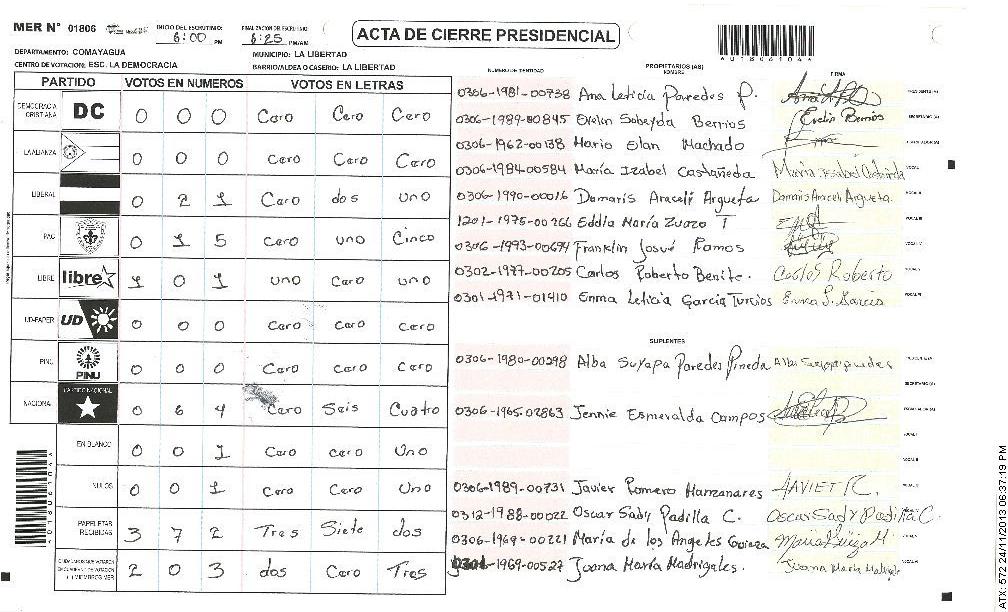 MER N° 01806
INICIO DEL ESCRUTINIO: 6:00 PM
FINALIZACION DEL ESCRUTINIO: 6:25 PM/AM
ACTA DE CIERRE PRESIDENCIAL
AU18061044
DEPARTAMENTO: COMAYAGUA
MUNICIPIO: LA LIBERTAD
CENTRO DE VOTACION: ESC. LA DEMOCRACIA
BARRIO/ALDEA O CASERIO: LA LIBERTAD
PARTIDO VOTOS EN NUMEROS VOTOS EN LETRAS
DEMOCRACIA CRISTIANA DC 0 0 0 Cero Cero Cero
LA ALIANZA 0 0 0 Cero Cero Cero
LIBERAL 0 2 1 Cero dos uno
PAC 0 1 5 cero uno Cinco
LIBRE libre 1 0 1 uno Cero uno
UD-FAPER UD 0 0 0 Cero cero cero
PINU PINU 0 0 0 Cero Cero Cero
NACIONAL PARTIDO NACIONAL 0 6 4 Cero Seis Cuatro
EN BLANCO 0 0 1 Cero cero Uno
NULOS 0 0 1 Cero Cero Uno
PAPELETAS RECIBIDAS 3 7 2 Tres Siete dos
2 0 3 dos Cero Tres
NUMERO DE IDENTIDAD PROPIETARIOS (AS) NOMBRE FIRMA
0306-1981-00738 Ana Leticia Paredes P.
0306-1989-00845 Evelin Sobeyda Berrios Evelin Berrios
0306-1962-00138 Mario Elan Machado
0306-1984-00584 María Izabel Castañeda
0306-1990-00016 Damaris Araceli Argueta Damaris Araceli Argueta
1201-1975-00266 Eddla María Zuazo T
0306-1993-00674 Franklin Josué Ramos
0302-1977-00205 Carlos Roberto Benite. Carlos Roberto
0301-1971-01410 Enma Leticia Garcia Turcios Enma L. Garcia
SUPLENTES
0306-1980-00298 Alba Suyapa Paredes Pineda
0306-1965-02863 Jennie Esmeralda Campos
0306-1989-00731 Javier Romero Manzanares JAVIET R.
0312-1988-00022 Oscar Sady Padilla C. Oscar Sady Padilla C.
0306-1969-00221 María de los Angeles
-1969-00527 Juana María Madrigales.
ATX: 572 24/11/2013 06:37:19 PM